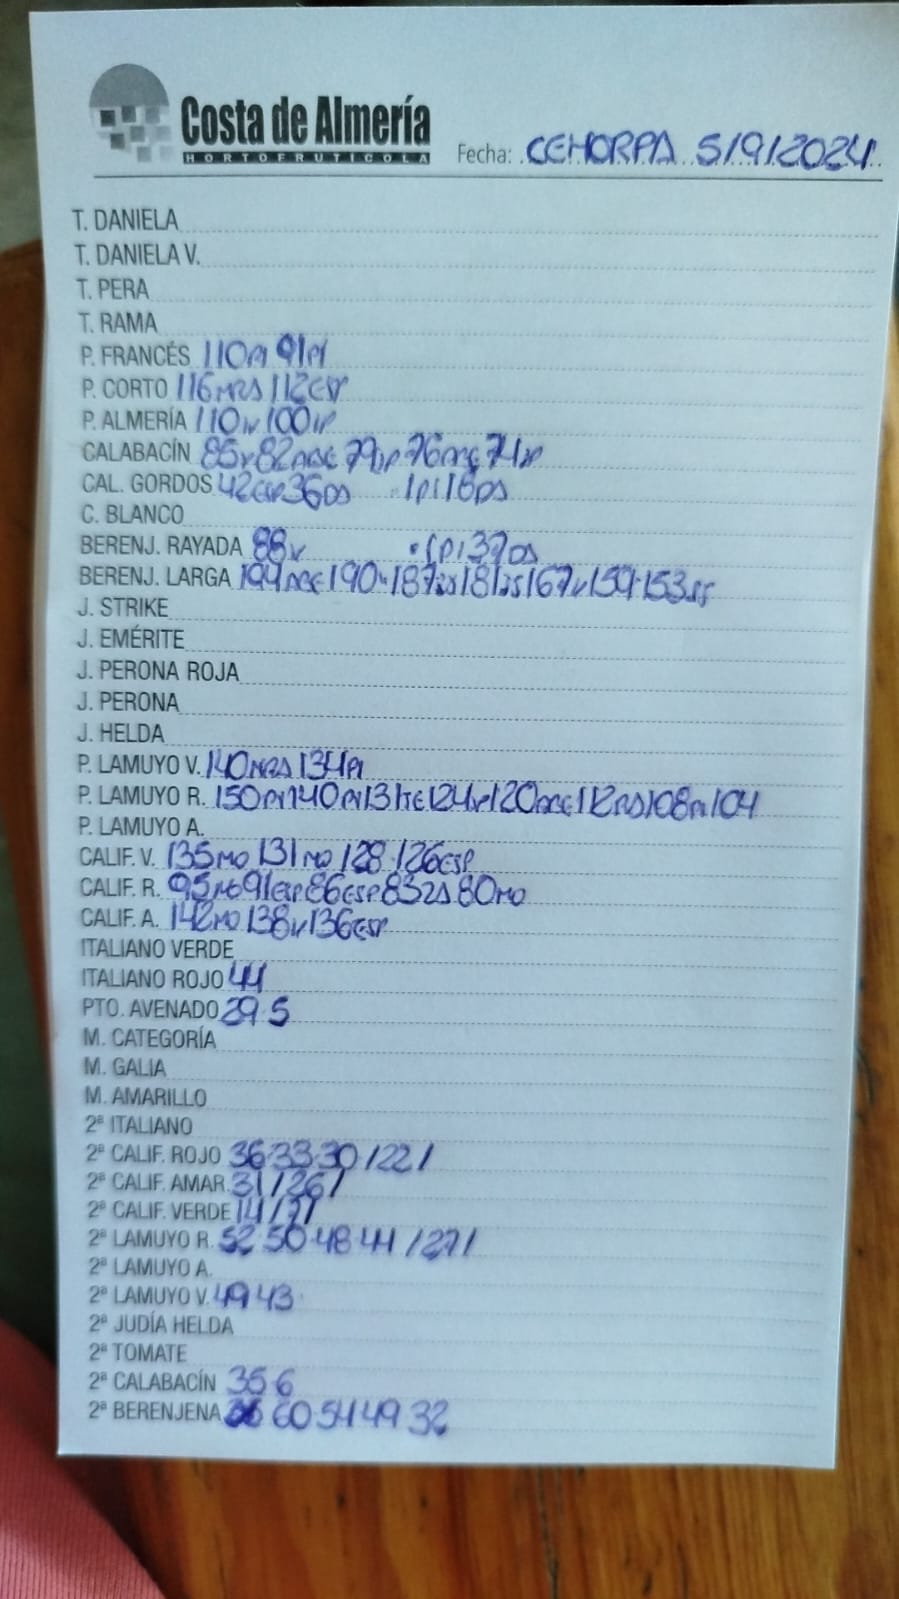 Costa de Almería
HORTOFRUTICOLA
Fecha: CEHORPA 5/9/2024
T. DANIELA
T. DANIELA V.
T. PERA
T. RAMA
P. FRANCÉS 110PI 91PI
P. CORTO 116MRS 112ESP
P. ALMERÍA 110 100
CALABACÍN 85 82 79 76 74
CAL. GORDOS 42ESP 36DS 1PI 18DS
C. BLANCO
BERENJ. RAYADA 88 37DS
BERENJ. LARGA 194 190 187 181 167 159 153
J. STRIKE
J. EMÉRITE
J. PERONA ROJA
J. PERONA
J. HELDA
P. LAMUYO V. 140MRS 134PI
P. LAMUYO R. 150PI 140PI 131 124 120 112 108 104
P. LAMUYO A.
CALIF. V. 135MO 131MO 128 126ESP
CALIF. R. 95MO 91ESP 86ESP 83 80MO
CALIF. A. 142MO 138 136ESP
ITALIANO VERDE
ITALIANO ROJO 44
PTO. AVENADO 29 5
M. CATEGORÍA
M. GALIA
M. AMARILLO
2ª ITALIANO
2ª CALIF. ROJO 36 33 30 /22/
2ª CALIF. AMAR. 31 /26/
2ª CALIF. VERDE 14
2ª LAMUYO R. 52 50 48 44 /27/
2ª LAMUYO A.
2ª LAMUYO V. 49 43
2ª JUDÍA HELDA
2ª TOMATE
2ª CALABACÍN 35 6
2ª BERENJENA 60 54 49 32